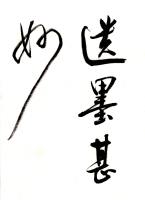 遗墨甚
妙